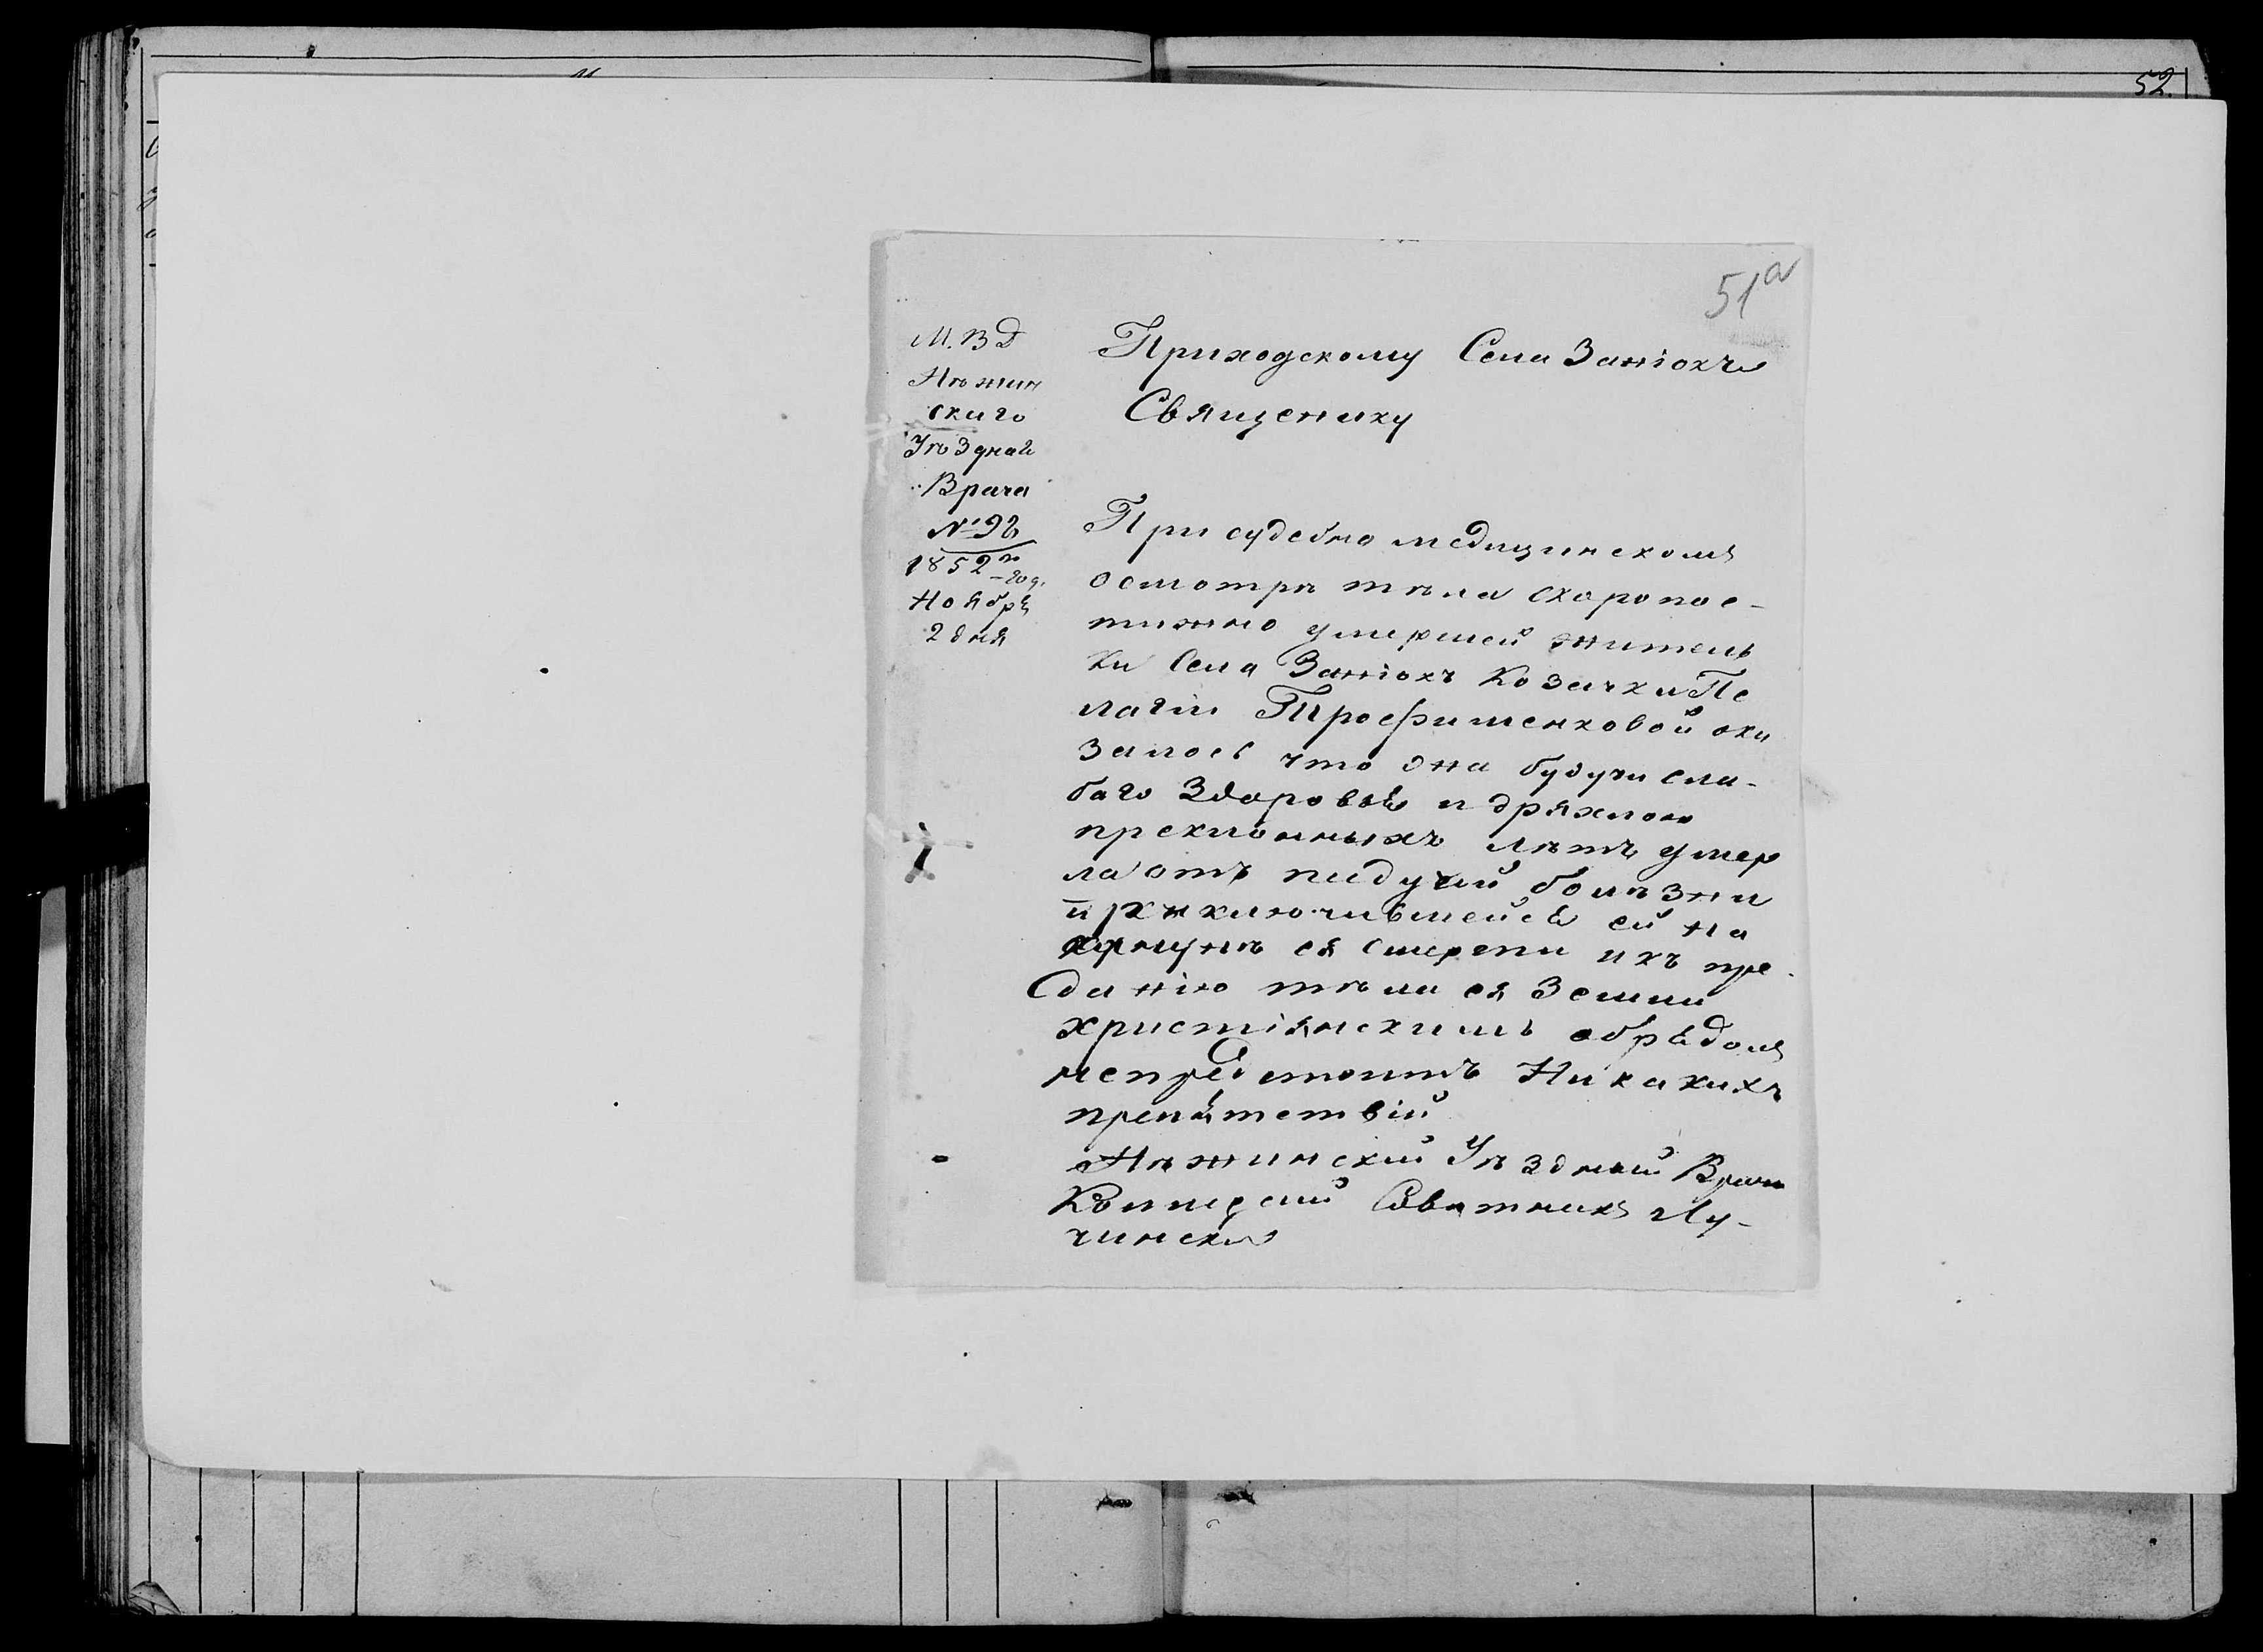 52.
51а
М. В Д
Нѣжин
скаго
Уѣзднай
Врача
№ 92
1852го год.
Ноября
2 дня
Приходскому Села Заньохъ
Священику
При судебно медицинскомъ
осмотрѣ тѣла скоропос-
тижно умершей житель
ки Села Заньохъ Козачки Пе
лагіи Трофименковой ока
залось что она будучи сла-
баго Здоровья и дряхлою
преклонныхъ лѣтъ умер
ла отъ падучей болѣзни
приключившейся ей на
ея смерти ихъ пре-
данію тѣла ея Земли
христіянскимъ обрядомъ
непредстоитъ Никакихъ
препятствій
Нѣжинскій Уѣздный Врачь
Совѣтникъ Лу-
чинскій